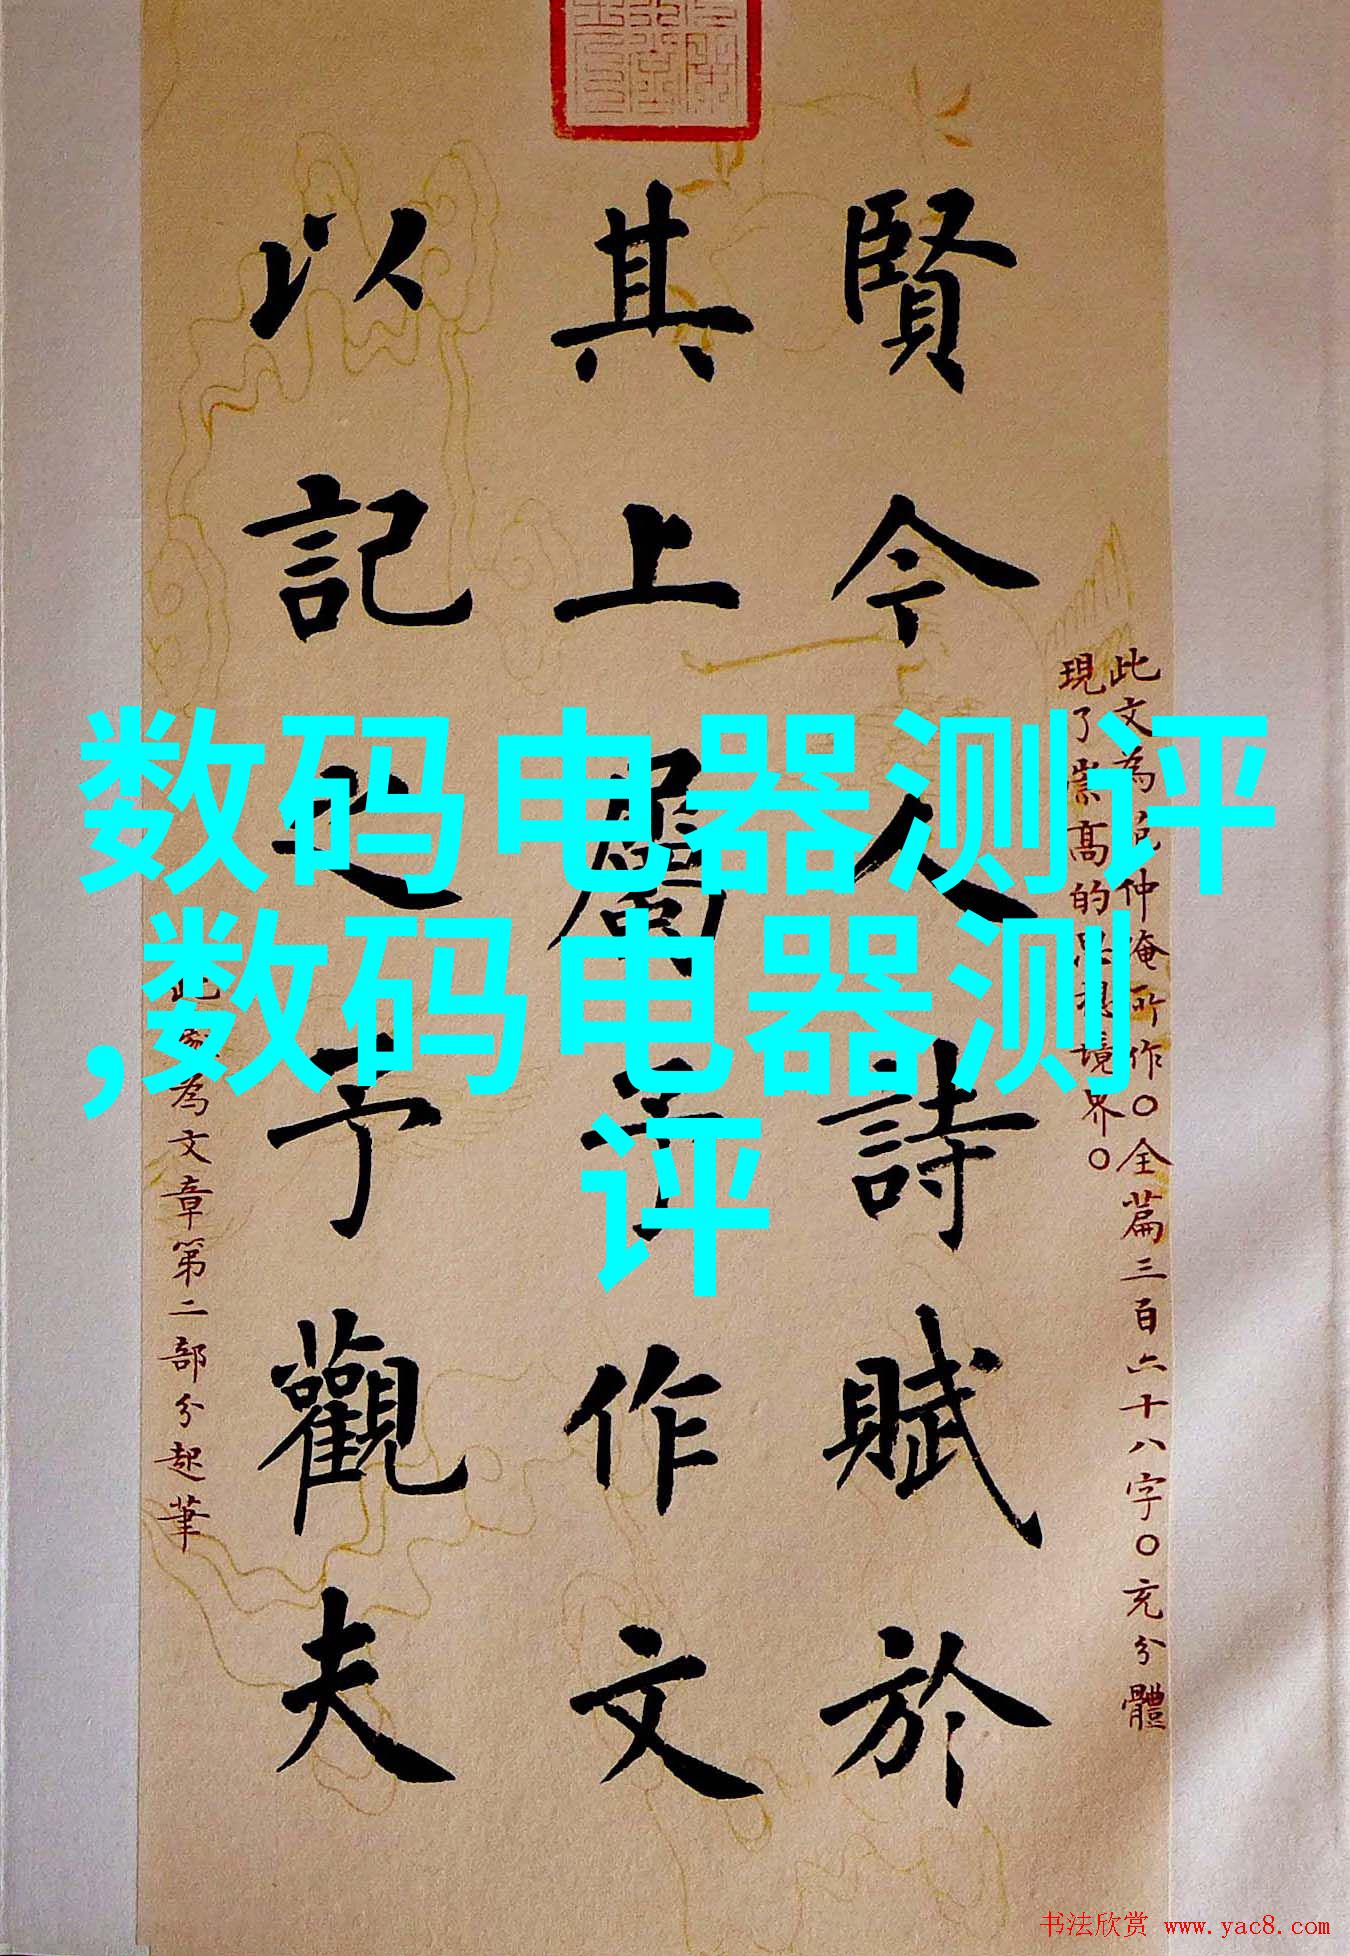 此文為范仲淹所作○全篇三百六十八字○充分體
現了崇高的思想境界○
賢今人詩賦於
其上屬予作文
以記之予觀夫
此為文章第二部分起筆
数码电器测评
,数码电器测
评
书法欣赏 www.yac8.com